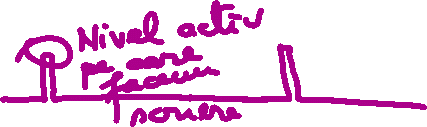 Nivel activ
pe care
facem
scriere